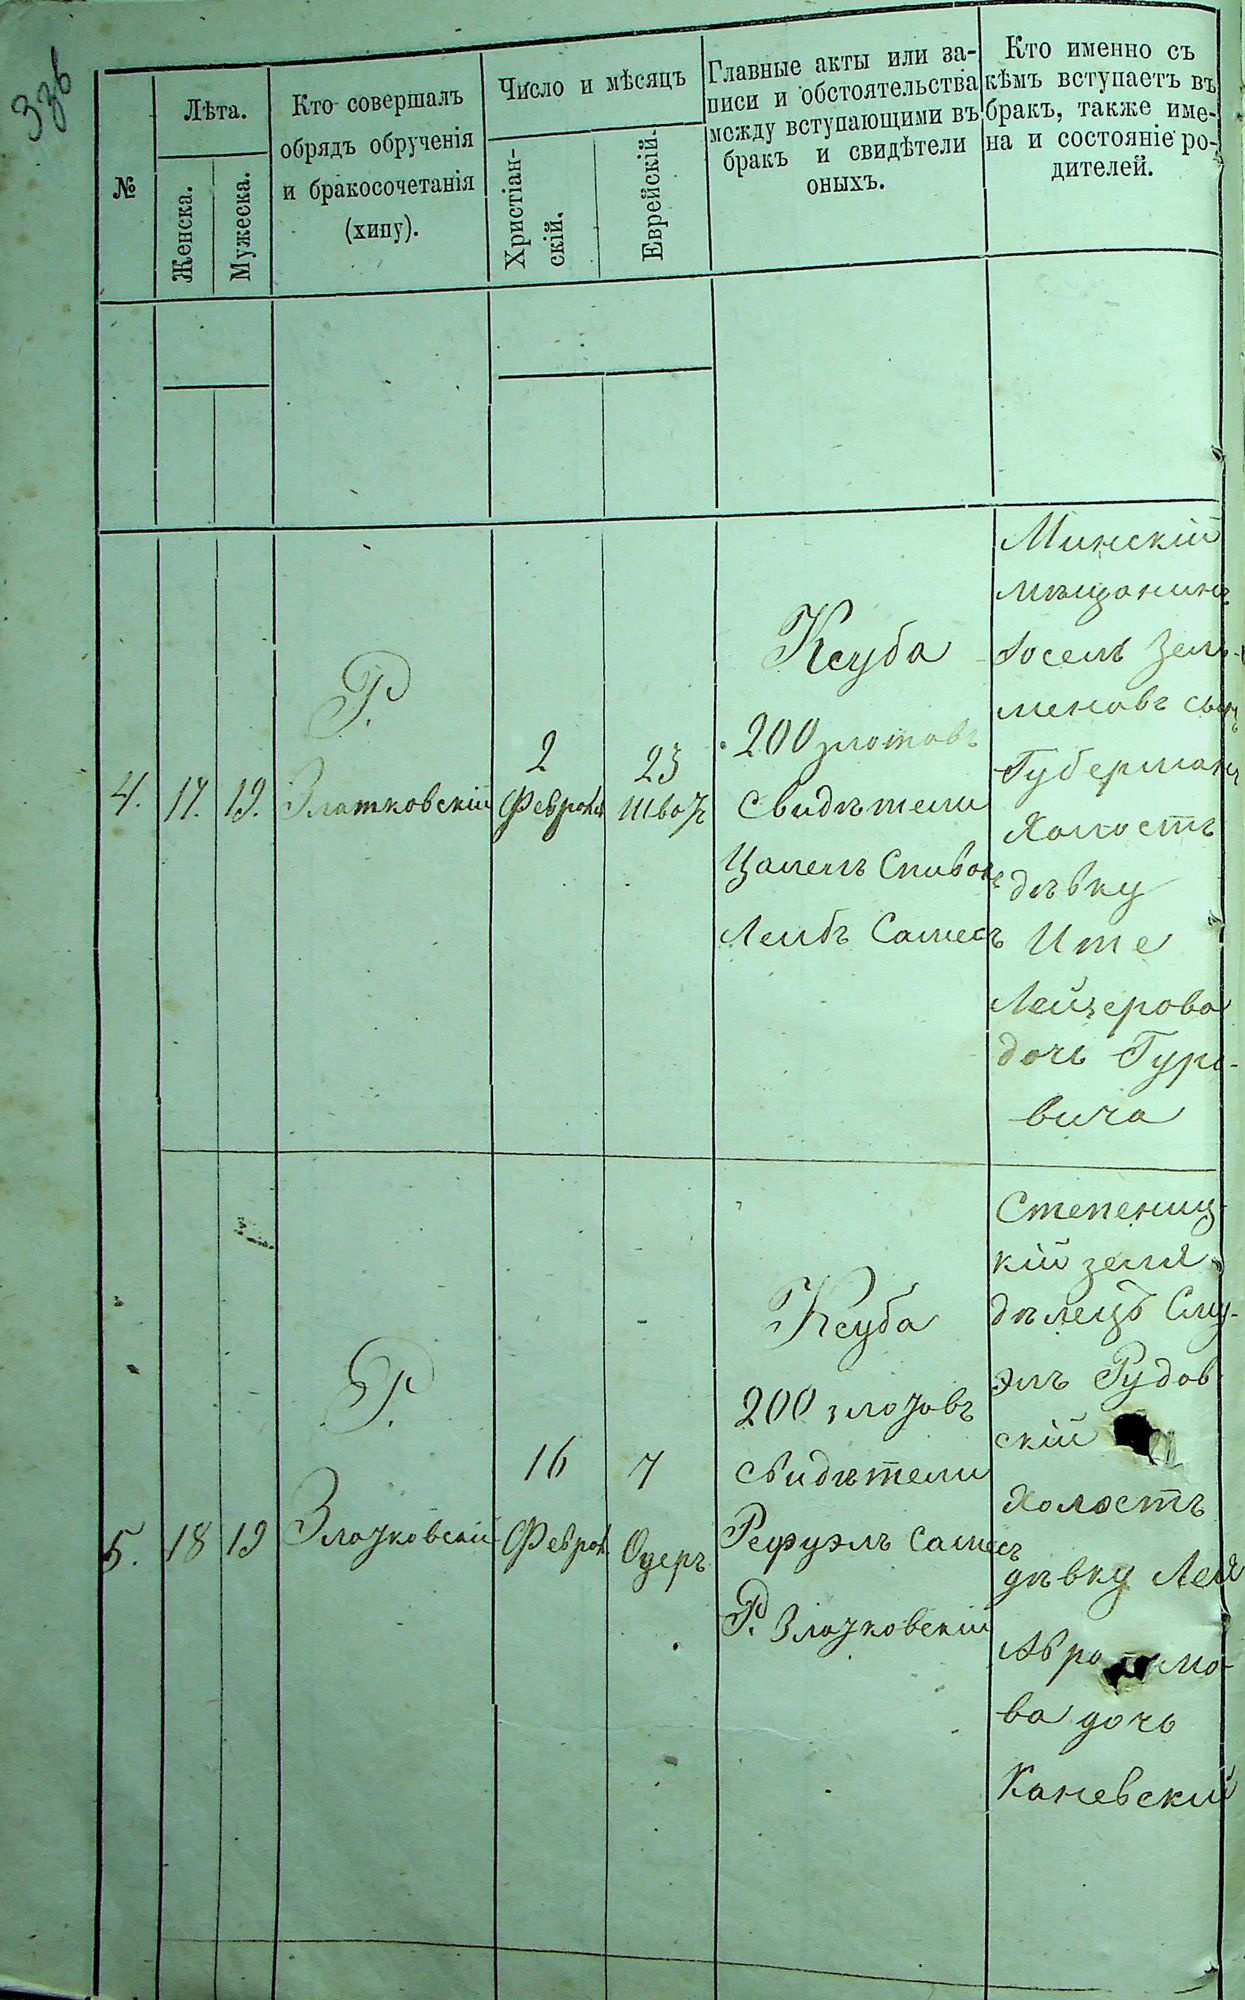 №
Лѣта.
Женска.
Мужеска.
Кто совершалъ
обрядъ обрученія
и бракосочетанія
(хипу).
Число и мѣсяцъ
Христіан-
скій.
Еврейскій.
Главные акты или за-
писи и обстоятельства
между вступающими въ
бракъ и свидѣтели
оныхъ.
Кто именно съ
кѣмъ вступаетъ въ
бракъ, также име-
на и состояніе ро-
дителей.
4.
17.
19.
Р.
Златковскій
2
Февраля
23
Шватъ
Ксуба
200 злотовъ
Свидѣтели
Цалелъ Спивакъ
Лейбъ Самесъ
Минскій
мѣщанинъ
Іосель Зель-
меновъ сынъ
Губерманъ
Холостъ
дѣвку
Ите
Лейзерова
дочь Гуро-
вича
5.
18
19
Р.
Златковскій
16
Феврал
7
Одеръ
Ксуба
200 злотовъ
свидѣтели
Рефуэлъ Самесъ
Р. Златковскій
Степениц-
кій земле-
дѣлецъ Сму-
элъ Рудов
скій
Холостъ
дѣвку Лея
Абрамо-
ва дочь
Каневскій